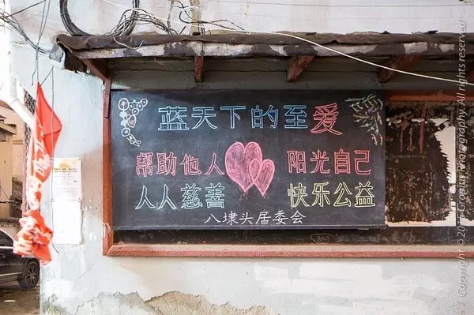 蓝天下的至爱
帮助他人 阳光自己
人人慈善 快乐公益
八埭头居委会